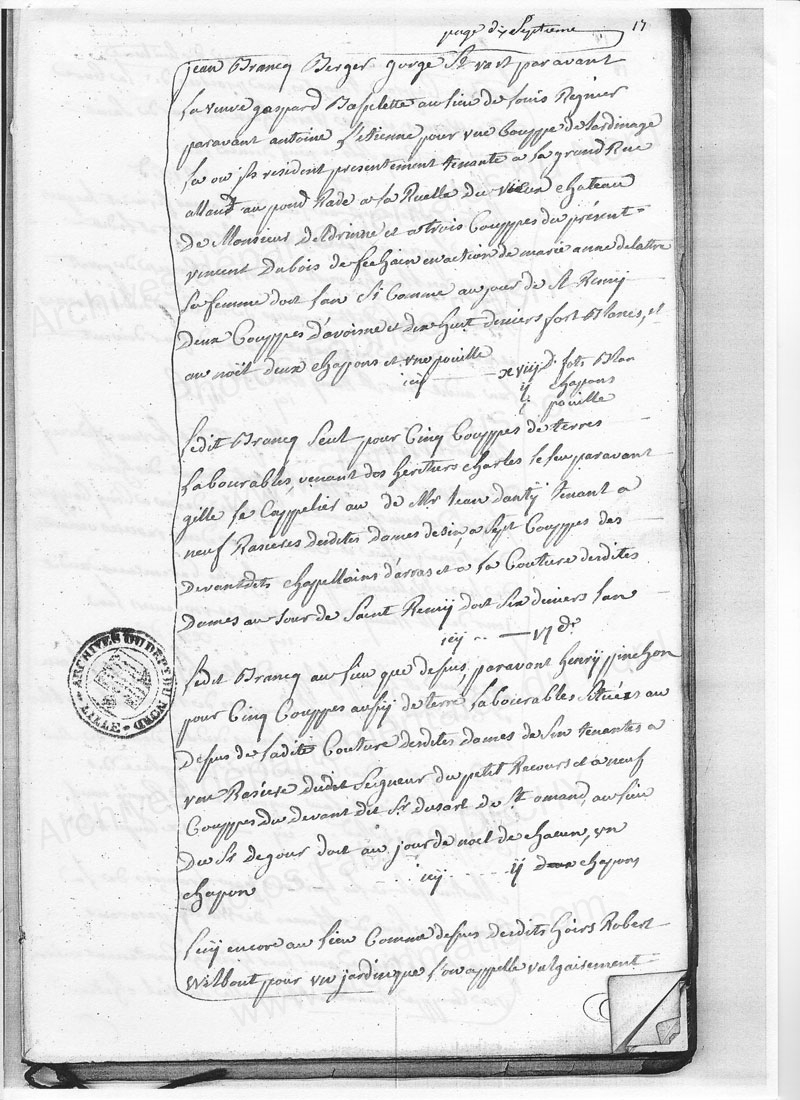 page dix Septieme 17
jean Brancq Berger gorge St vast paravant
la veuve gaspard Baselette au lieu de louis Regnier
paravant antoine Letienne pour une Couppe de Jardinage
la ou ils resident presentement tenante a la grand Rue
allant au pond Rade a la Ruelle du vieux chateau
De Monsieur et a trois Couppes du présent
vincent Dubois de fechain en action de marie anne delattre
Sa femme doit lan Si Comme au jour de St Remy
Deux Couppes d'avoinne et dix huit deniers fort Blancs, et
au noël deux chappons et une pouille
icy xviij d. fots Blan
ij chappons
i pouille
Ledit Brancq Seul pour Cinq Couppes de terres
Labourables, venant des heritiers charles le feu paravant
gille le Cappelier au de Mr Jean dantÿ tenant a
neuf Rasieres desdites dames de sin, a Sept Couppes des
Devantdits chapellains d'arras et a la Couture desdites
Dames au Jour de Saint Remÿ doit Six deniers lan
icy .. — vj d.
Ledit Brancq au lieu que desus paravant henrÿ pinchon
pour Cinq Couppes aussÿ de terre labourables Situées au
desus de ladite Couture desdites dames de Sin tenantes a
une Rasiere dudit Seigneur du petit Recours et a neuf
Couppes du devant dit Sr dusart de St amand, au lieu
Du Sr degour doit au jour de noel de chacun, un
chapon
icy .. ij chapons
Lui encore au lieu Comme desus desdits hoirs Robert
Wilbout pour un jardin que l'on appelle vulgairement
ARCHIVES DU DEPT DU NORD
LILLE